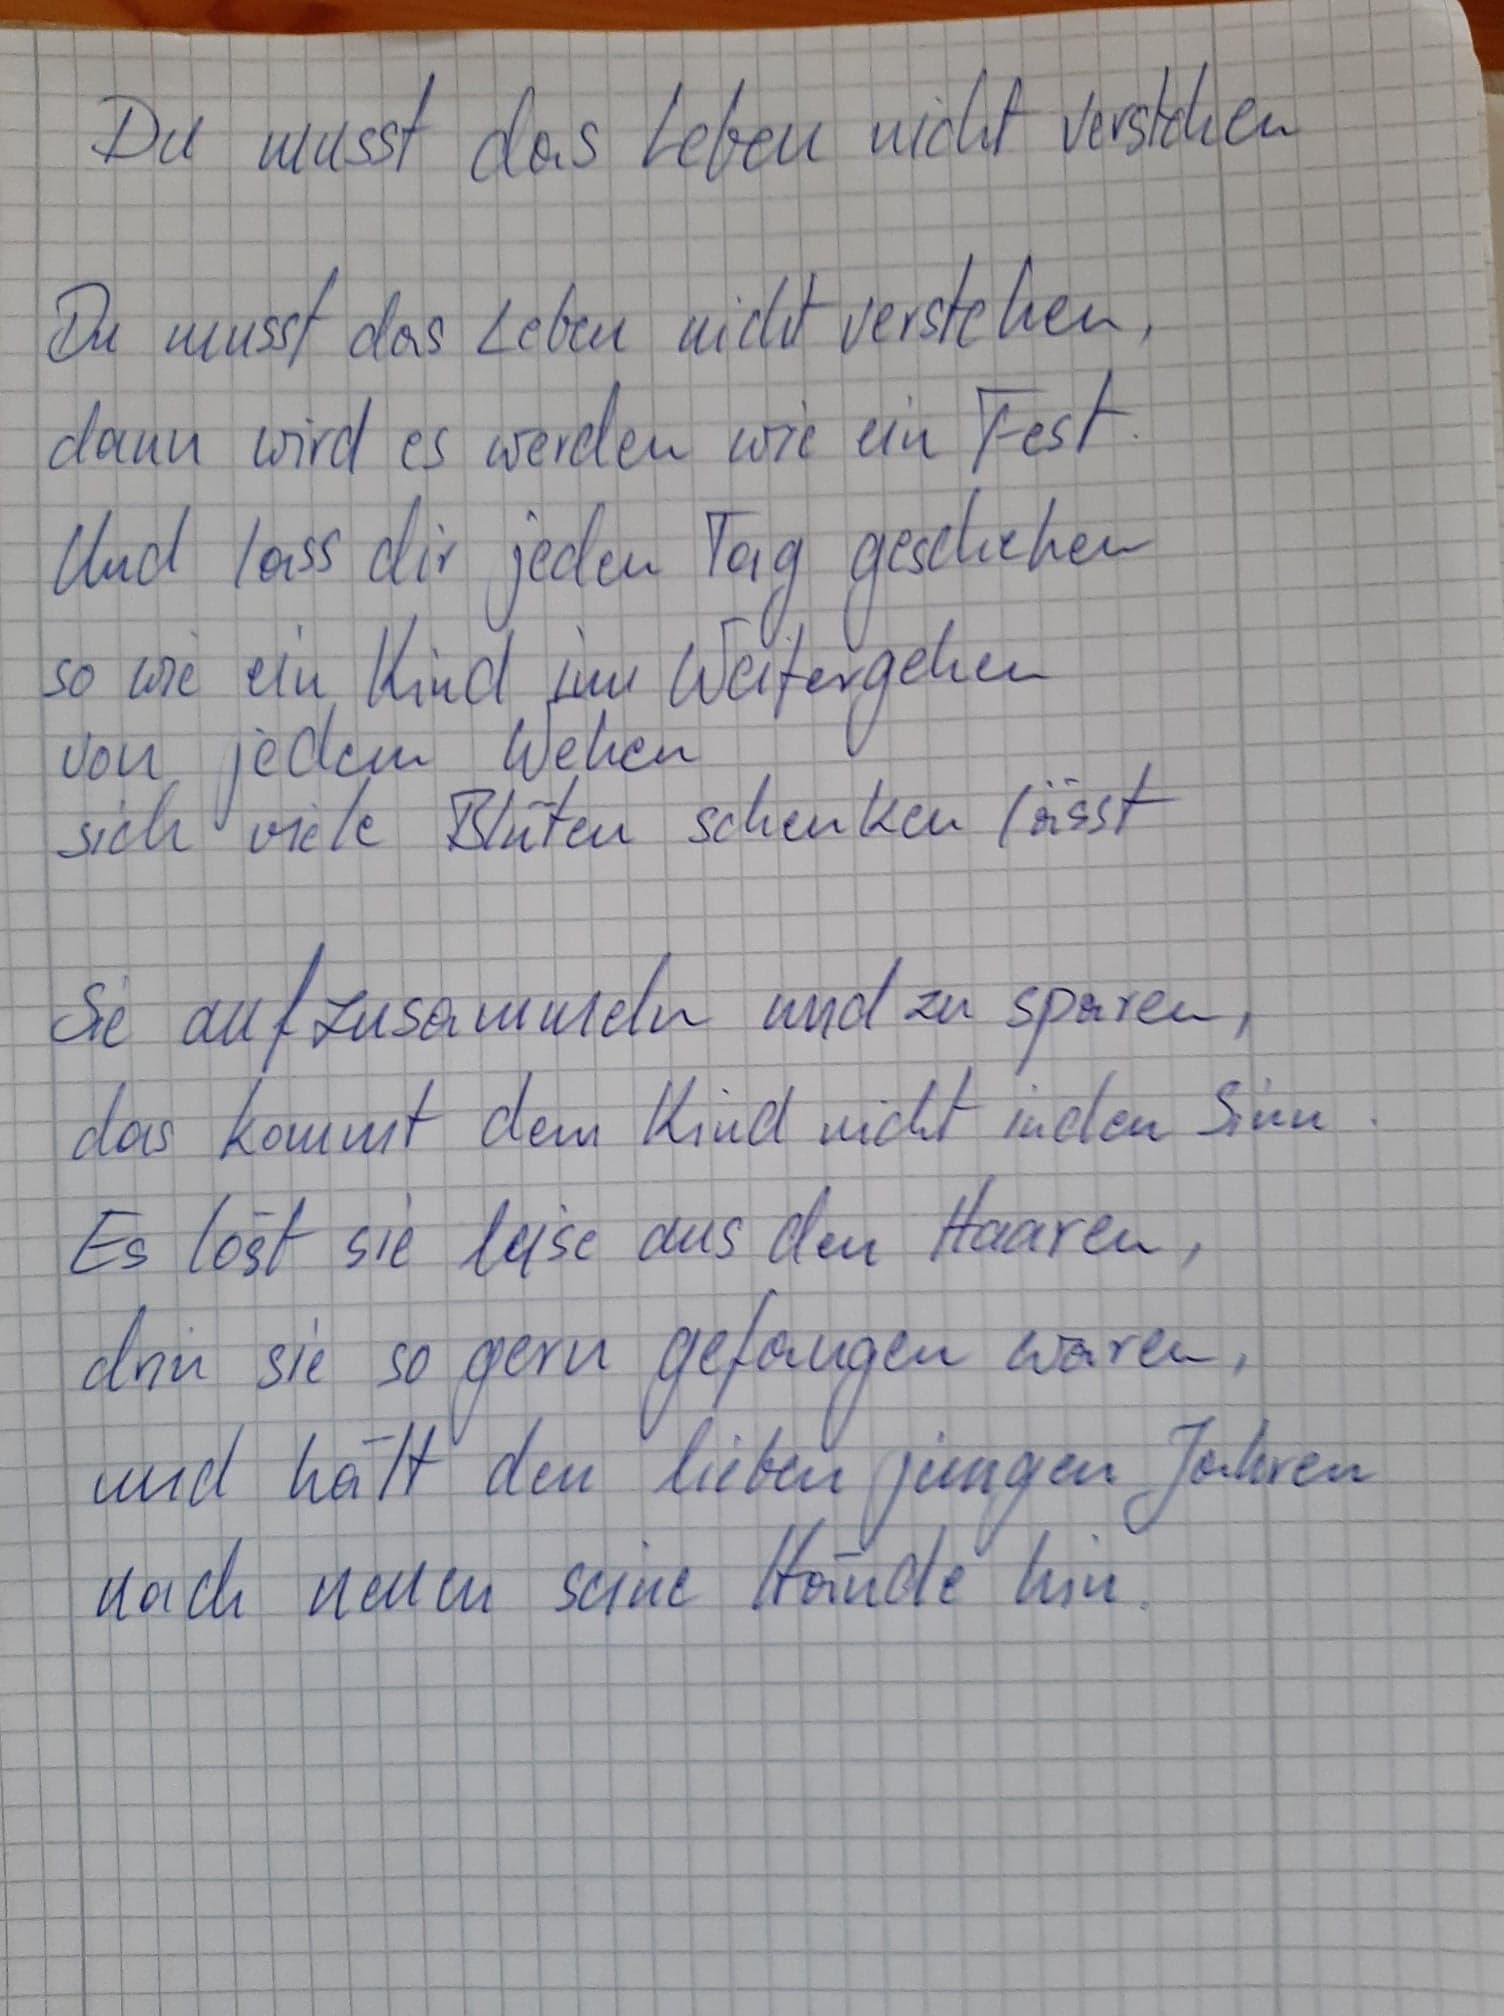 Du musst das Leben nicht verstehen
Du musst das Leben nicht verstehen,
dann wird es werden wie ein Fest.
Und lass dir jeden Tag geschehen
so wie ein Kind im Weitergehen
von jedem Wehen
sich viele Blüten schenken lässt
Sie aufzusammeln und zu sparen,
das kommt dem Kind nicht in den Sinn.
Es löst sie leise aus den Haaren,
drin sie so gern gefangen waren,
und hält den lieben jungen Jahren
nach neuen seine Hände hin.